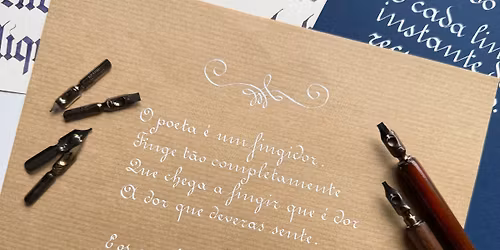 O poeta é um fingidor.
Finge tão completamente
Que chega a fingir que é dor
A dor que deveras sente.
cada
instante